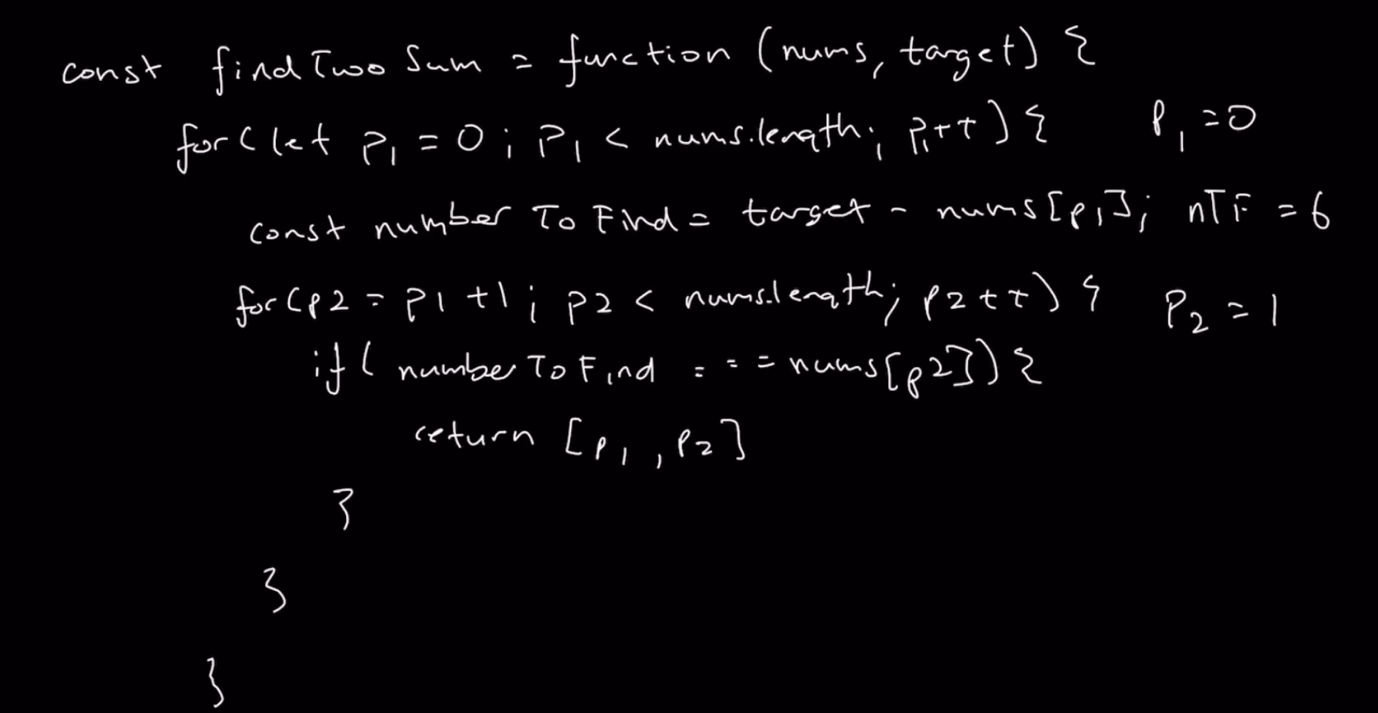 const findTwoSum = function (nums, target) {
for(let P1 = 0; P1 < nums.length; P1++){ P1 = 0
const numberToFind = target - nums[p1]; nTF = 6
for(p2 = p1 + 1; p2 < nums.length; p2++){ P2 = 1
if(numberToFind === nums[p2]){
return [p1, p2]
}
}
}